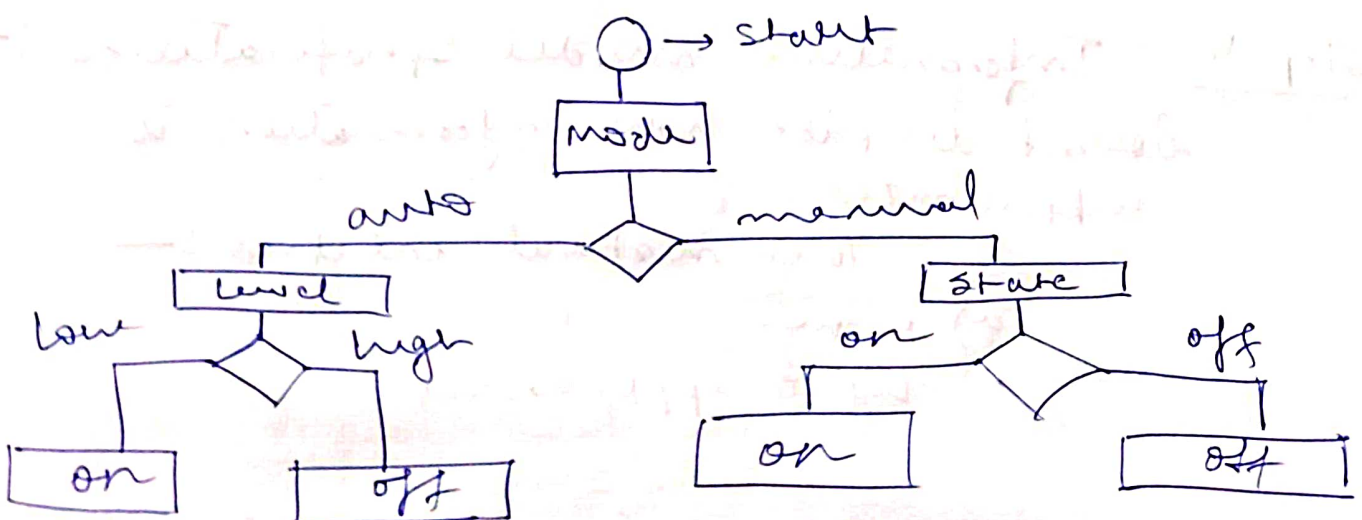 → start
mode
auto
manual
level
state
low
high
on
off
on
off
on
off